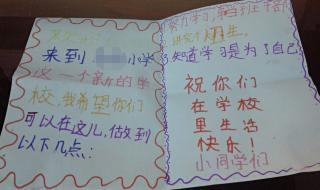 来到 小学
这一个新的学
校,我希望你们
可以在这儿,做到
以下几点:
努力学习,
知道学习是为了自己
祝你们
在学校
里生活
快乐!
小同学们